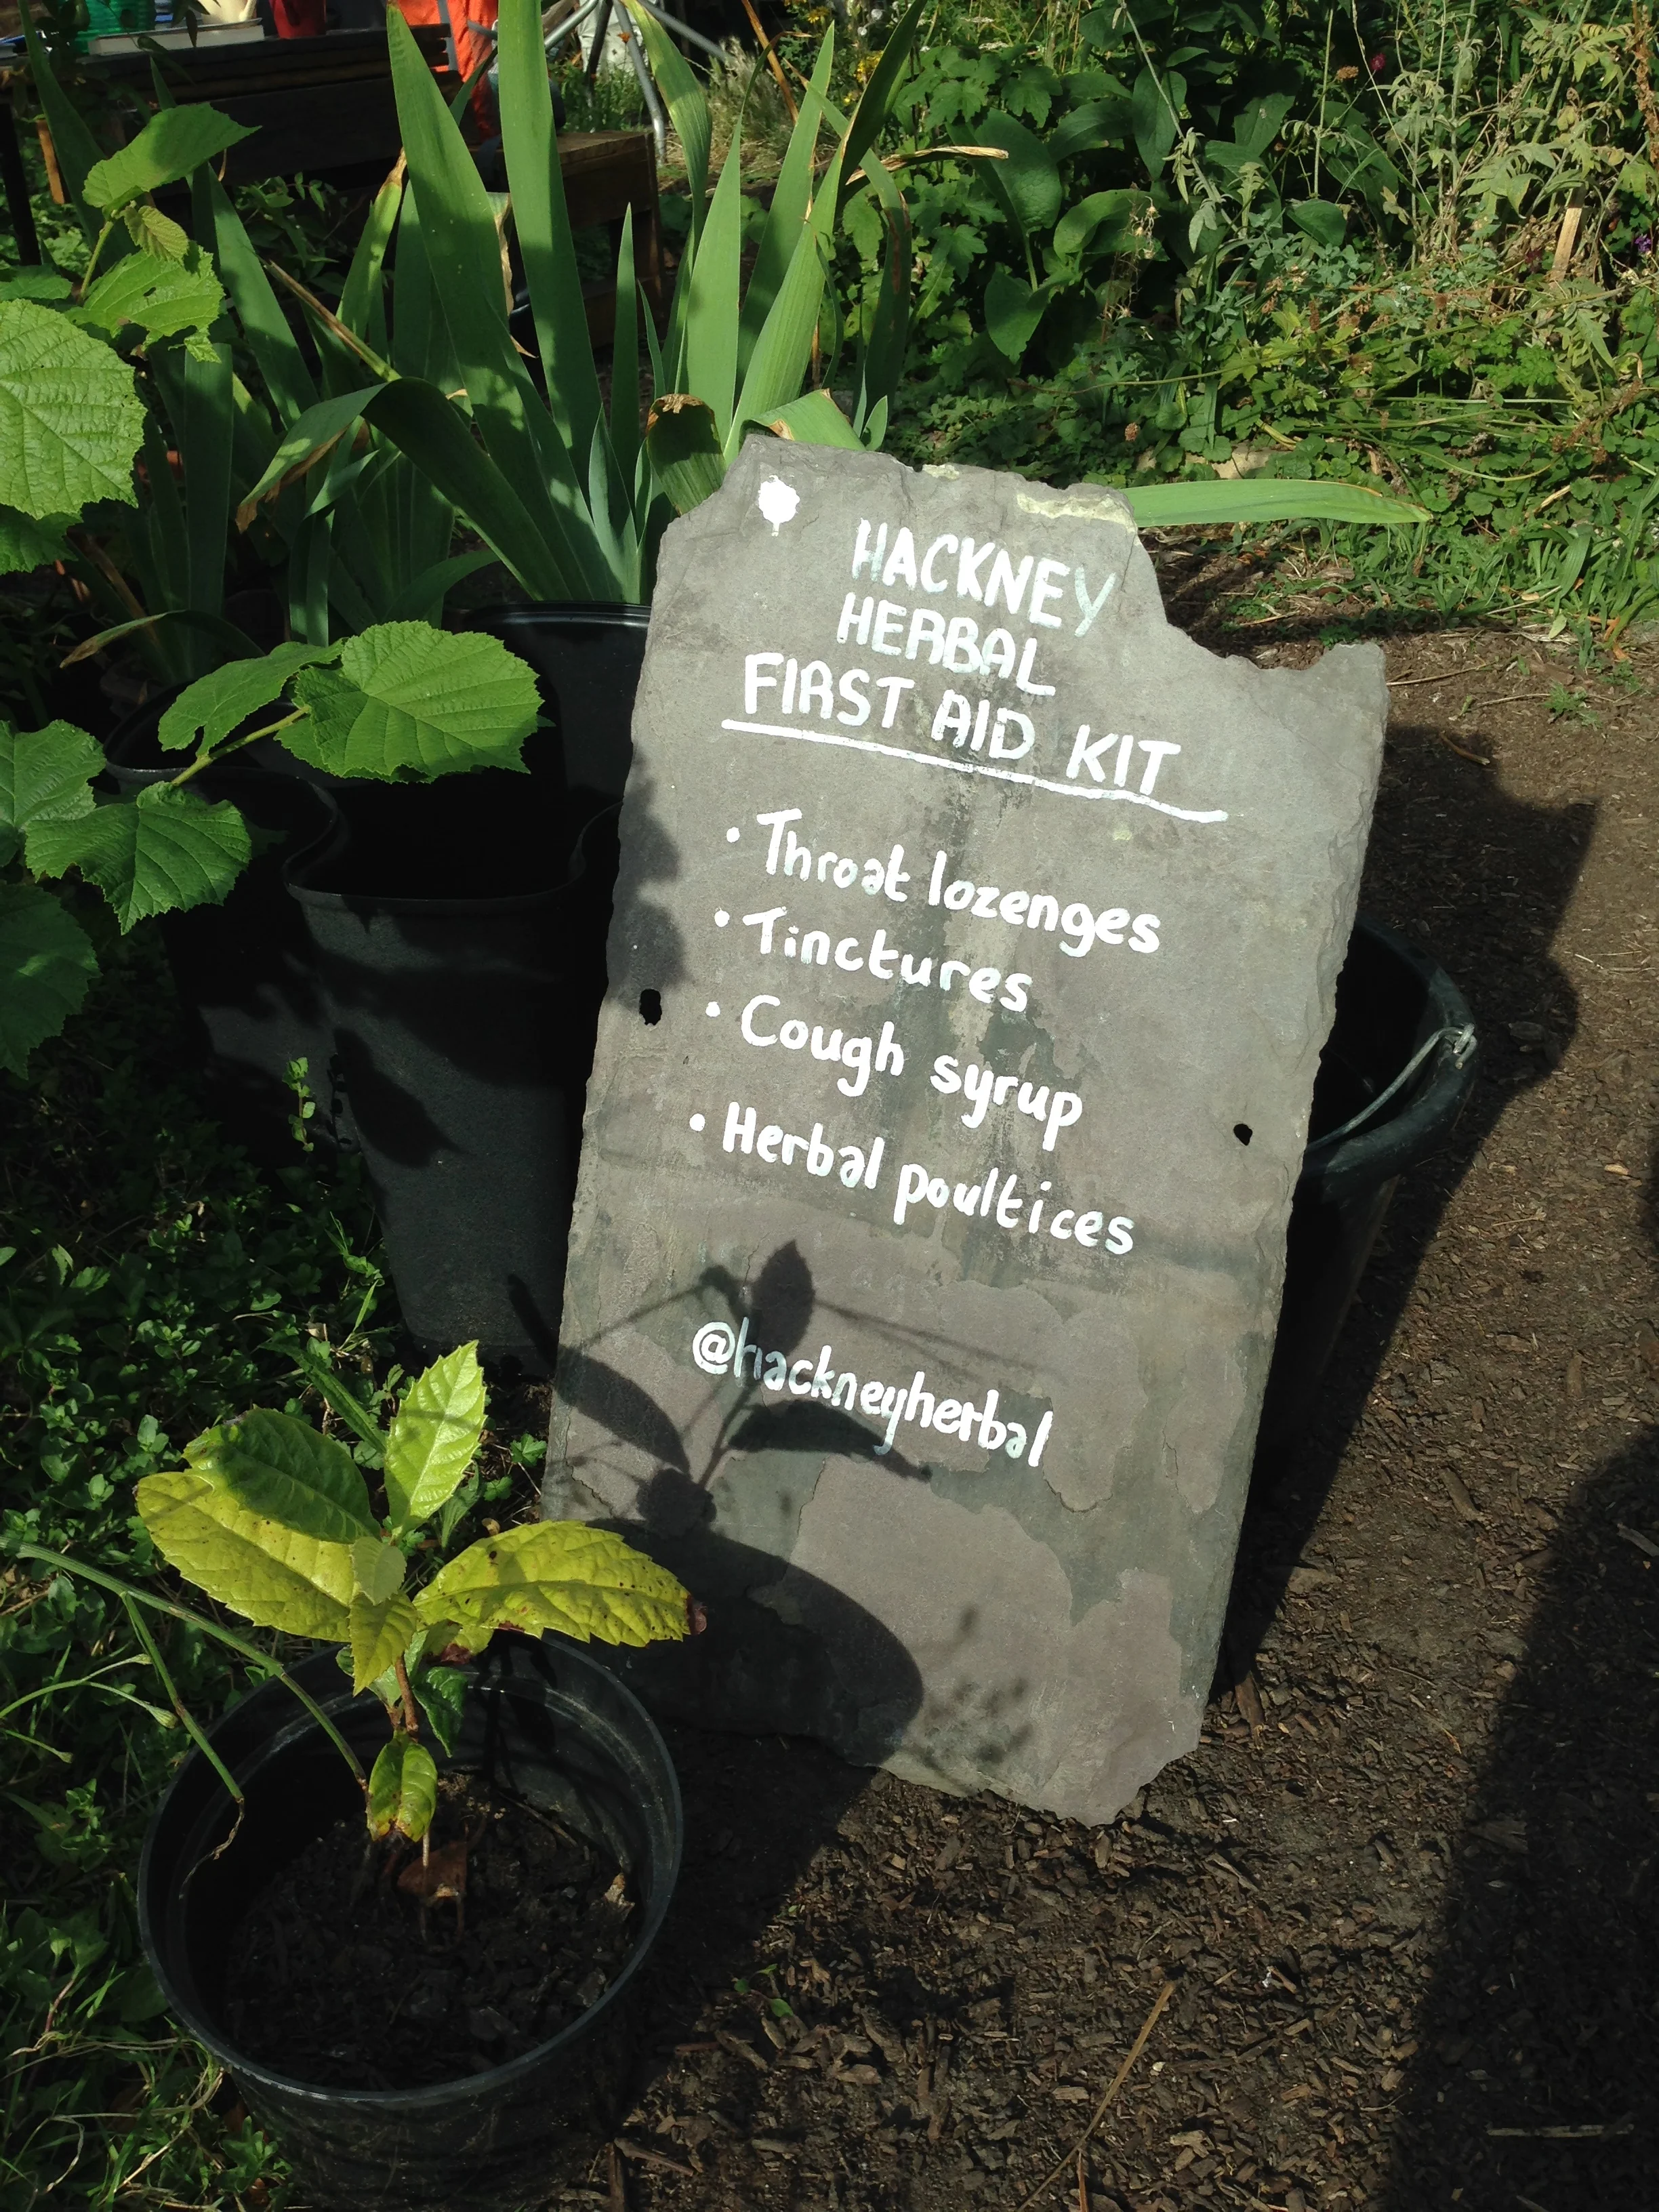 HACKNEY
HERBAL
FIRST AID KIT
• Throat lozenges
• Tinctures
• Cough syrup
• Herbal poultices
@hackneyherbal